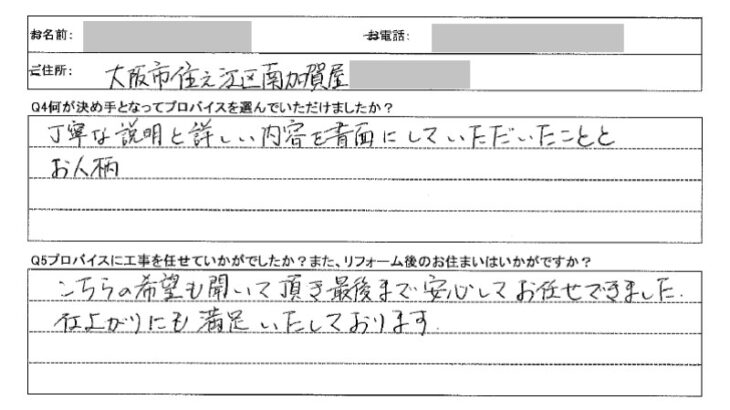 お名前:
お電話:
ご住所: 大阪市住之江区南加賀屋
Q4何が決め手となってプロバイスを選んでいただけましたか?
丁寧な説明と詳しい内容を書面にしていただいたことと
お人柄
Q5プロバイスに工事を任せていかがでしたか?また、リフォーム後のお住まいはいかがですか?
こちらの希望も聞いて頂き最後まで安心してお任せできました.
仕上がりにも満足いたしております.